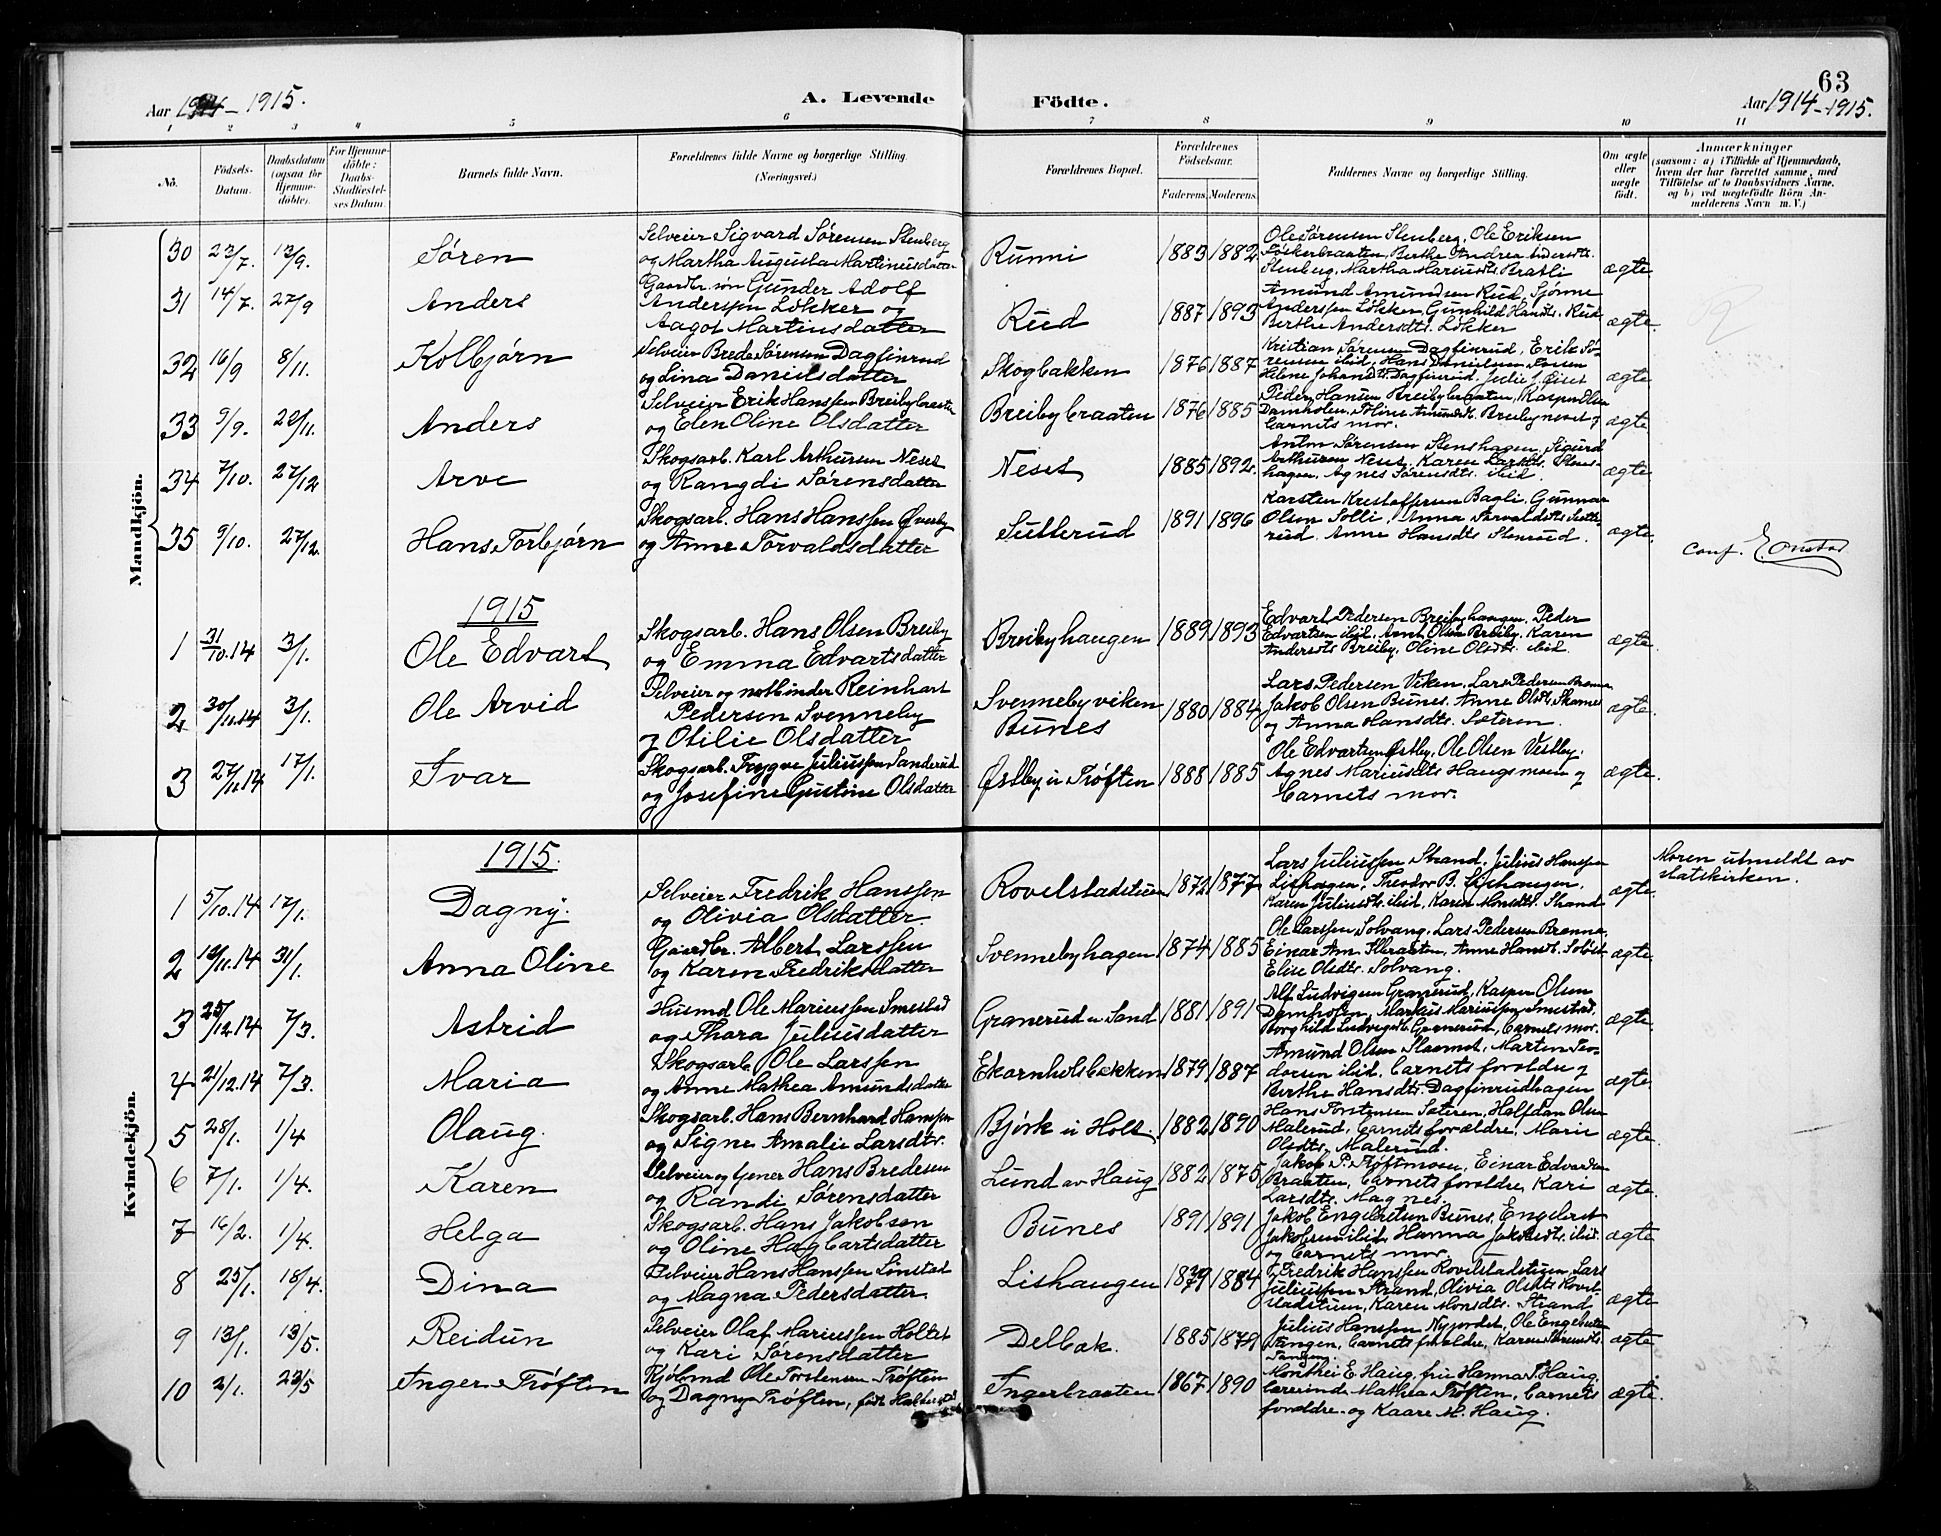 63
Aar 1914-1915.
A. Levende Fødte.
Aar 1914-1915.
1 2 3 4 5 6 7 8 9 10 11
No.
Fødsels-Datum.
Daabsdatum (ogsaa for Hjemme-døbte).
For Hjemme-døbte: Daabs-Stadfæstel-ses Datum.
Barnets fulde Navn.
Forældrenes fulde Navne og borgerlige Stilling. (Næringsvei.)
Forældrenes Bopæl.
Forældrenes Fødselsaar.
Faderens. Moderens.
Faddernes Navne og borgerlige Stilling.
Om ægte eller uægte født.
Anmærkninger
(saasom: a) i Tilfælde af Hjemmedaab, hvem der har forrettet samme, med Tilføielse af to Daabsvidners Navne, og b) ved uægtefødte Børn An-melderens Navn m. V.)
Mandkjøn.
30 23/7. 13/9. Søren
Selveier Sigvard Sørensen Stenberg
og Martha Augusta Martinusdatter
Runni 1883 1882
Ole Sørensen Stenberg, Ole Eriksen
Berthe Andrea Andersdt.
Stenberg, Martha Mariusdt. Bratli
ægte
31 14/7. 27/9 Anders
Gaardbr. søn Gunder Adolf
Anderssen Løkker og
Aagot Martinusdatter
Rud 1887 1893
Amund Amundsen Rud, Sjønne
Anderssen Løkken, Gunhild Hansdt. Rud
Berthe Andersdt. Løkken
ægte.
32 16/9 8/11. Kolbjørn
Selveier Brede Sørensen Dagfinrud
og Lina Danielsdatter
Skogbakken 1876 1887
Kristian Sørensen Dagfinrud, Erik Sø-
rensen ibid, Hans Danielsen
Helene Johansdt. Dagfinrud, Julie J. Øiset
ægte
33 9/9. 20/11. Anders
Selveier Erik Hanssen Breibybraaten
og Elen Oline Olsdatter
Breibybraaten 1876 1885
Peder Hansen Breibybraaten, Kasper Olsen
Damholen, Breibyneset og
barnets mor.
ægte
34 7/10. 27/12 Arve
Skogsarb. Karl Arthursen Neset
og Rangdi Sørensdatter
Neset 1885 1892.
Anton Sørensen Stenshagen, Sigurd
Arthursen Neset, Karen Larsdt. Stens-
hagen, Agnes Sørensdt. ibid.
ægte
35 9/10. 27/12. Hans Torbjørn
Skogsarb. Hans Hanssen Øverby
og Anne Torvaldsdatter
Sutterud 1891 1896
Karsten Kristoffersen Bagli, Gunnar
Olsen Solli, Anna Torvaldsdt. Sutte-
rud. Anne Hansdt. Stenrud.
ægte.
Conf. E. Onstad
1915
1 31/10.14 3/1. Ole Edvart
Skogsarb. Hans Olsen Breiby
og Emma Edvartsdatter
Breibyhaugen 1889 1893
Edvart Pedersen Breibyhaugen, Peder
Edvartsen ibid. Arnt Olsen Breiby. Karen
Andersdt. Breiby, Oline Olsdt. ibid
ægte.
2 30/11.14 3/1. Ole Arvid
Selveier og notbinder Reinhart
Pedersen Svenneby
og Otilie Olsdatter
Svennebyviken
Bunes 1880 1884
Lars Pedersen Viken, Lars Pedersen Brenna,
Jakob Olsen Bunes, Anne Olsdt.
og Anna Hansdt. Sæteren.
ægte.
3 27/11.14 17/1. Ivar
Skogsarb. Trygve Juliussen Sanderud
og Josefine Gustine Olsdatter
Østby u Trøften 1888 1885
Ole Edvartsen Østby, Ole Olsen Vestby.
Agnes Mariusdt. Haugsmoen og
barnets mor.
ægte.
Kvindekjøn.
1915.
1 5/10.14 17/1. Dagny.
Selveier Fredrik Hanssen
og Olivia Olsdatter.
Rovelstadstuen 1872 1877
Lars Juliussen Strand, Julius Hanssen
Lishaugen, Theodor B. Lishaugen,
Karen Juliusdt. ibid, Karen Monsdt. Strand
ægte.
Moren utmeldt av
statskirken.
2 19/11.14 31/1. Anna Oline
Gaardbr. Albert Larssen
og Karen Fredriksdatter
Svennebyhagen 1874 1885
Ole Larssen Solvang, Lars Pedersen Brenna,
Einar Am. Anne Hansdt.
Elise Olsdt. Solvang.
ægte
3 25/12.14 7/3. Astrid
Husmd Ole Mariussen Smestad
og Thora Juliusdatter
Granerud u Sand 1881 1891
Alf Ludvigsen Granerud, Kasper Olsen
Damholen, Markus Mariussen Smestad,
Borghild Ludvigsdt. Granerud, barnets mor.
ægte
4 21/12.14 7/3. Maria
Skogsarb. Ole Larssen
og Anne Mathea Amundsdatter
Ekornholsbakken 1879 1887
Amund Olsen Slaamot, Marten Teo-
dorsen ibid. barnets forældre og
Berthe Hansdt. Dagfinrudhagen
ægte
5 28/1. 1/4 Olaug.
Skogsarb. Hans Bernhard Hanssen
og Signe Amalie Larsdtr.
Bjørk u Holt. 1882 1890
Hans Tontensen Sæteren, Halfdan Olsen
Malerud, barnets forældre, Marie
Olsdt. Malerud.
ægte.
6 7/1. 1/4. Karen
Selveier og Hans Bredesen
og Randi Sørensdatter
Lund av Haug 1882 1875
Jakob P. Trøftmoen, Einar Edvardsen
Braaten, barnets forældre, Kari
Larsdt. Magnes.
ægte.
7 16/2. 1/4. Helga
Skogsarb. Hans Jakobsen
og Oline Hagbartsdatter
Bunes 1891 1891
Jakob Engebretsen Bunes, Engebret
Jakobsen ibid, Hanna Jakobsdt. ibid.
og barnets mor.
ægte
8 25/1. 18/4. Dina
Selveier Hans Hanssen Linstad
og Magna Pedersdatter
Lishaugen 1879 1884
Fredrik Hanssen Rovelstadstuen, Lars
Juliussen Strand, Olivia Olsdt. Rovel-
stadstuen, Karen Monsdt. Strand
ægte
9 13/1. 13/5. Reidun
Selveier Olaf Mariussen Holtet
og Kari Sørensdatter
Delbak. 1885 1879
Julius Hanssen Nyjordet, Ole Engebretsen
Tangen, barnets forældre, Karen Sørensdt.
Tangen
ægte
10 2/1. 23/5 Inger Trøften
Kjøbmd Ole Torstensen Trøften
og Dagny Trøften, født
Ingerbraaten 1867 1890
E. Haug, fru Hanna P. Haug,
lærerinde Mathea Trøften, barnets
forældre og Kaare M. Haug.
ægte.